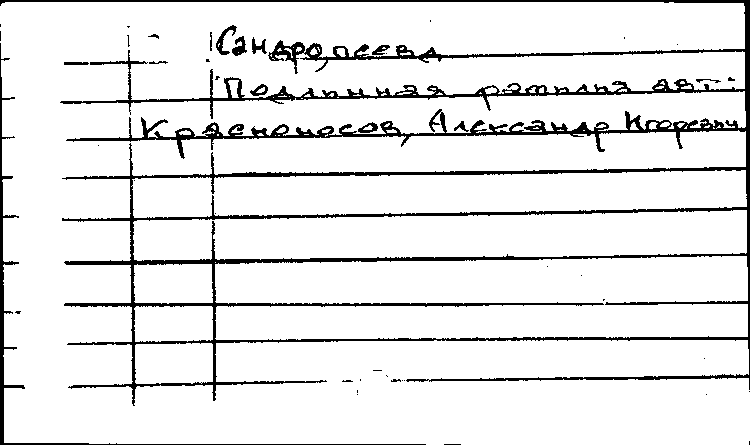 Сандро, псевд
Подлинная фамилия авт.:
Красноносов, Александр Игоревич